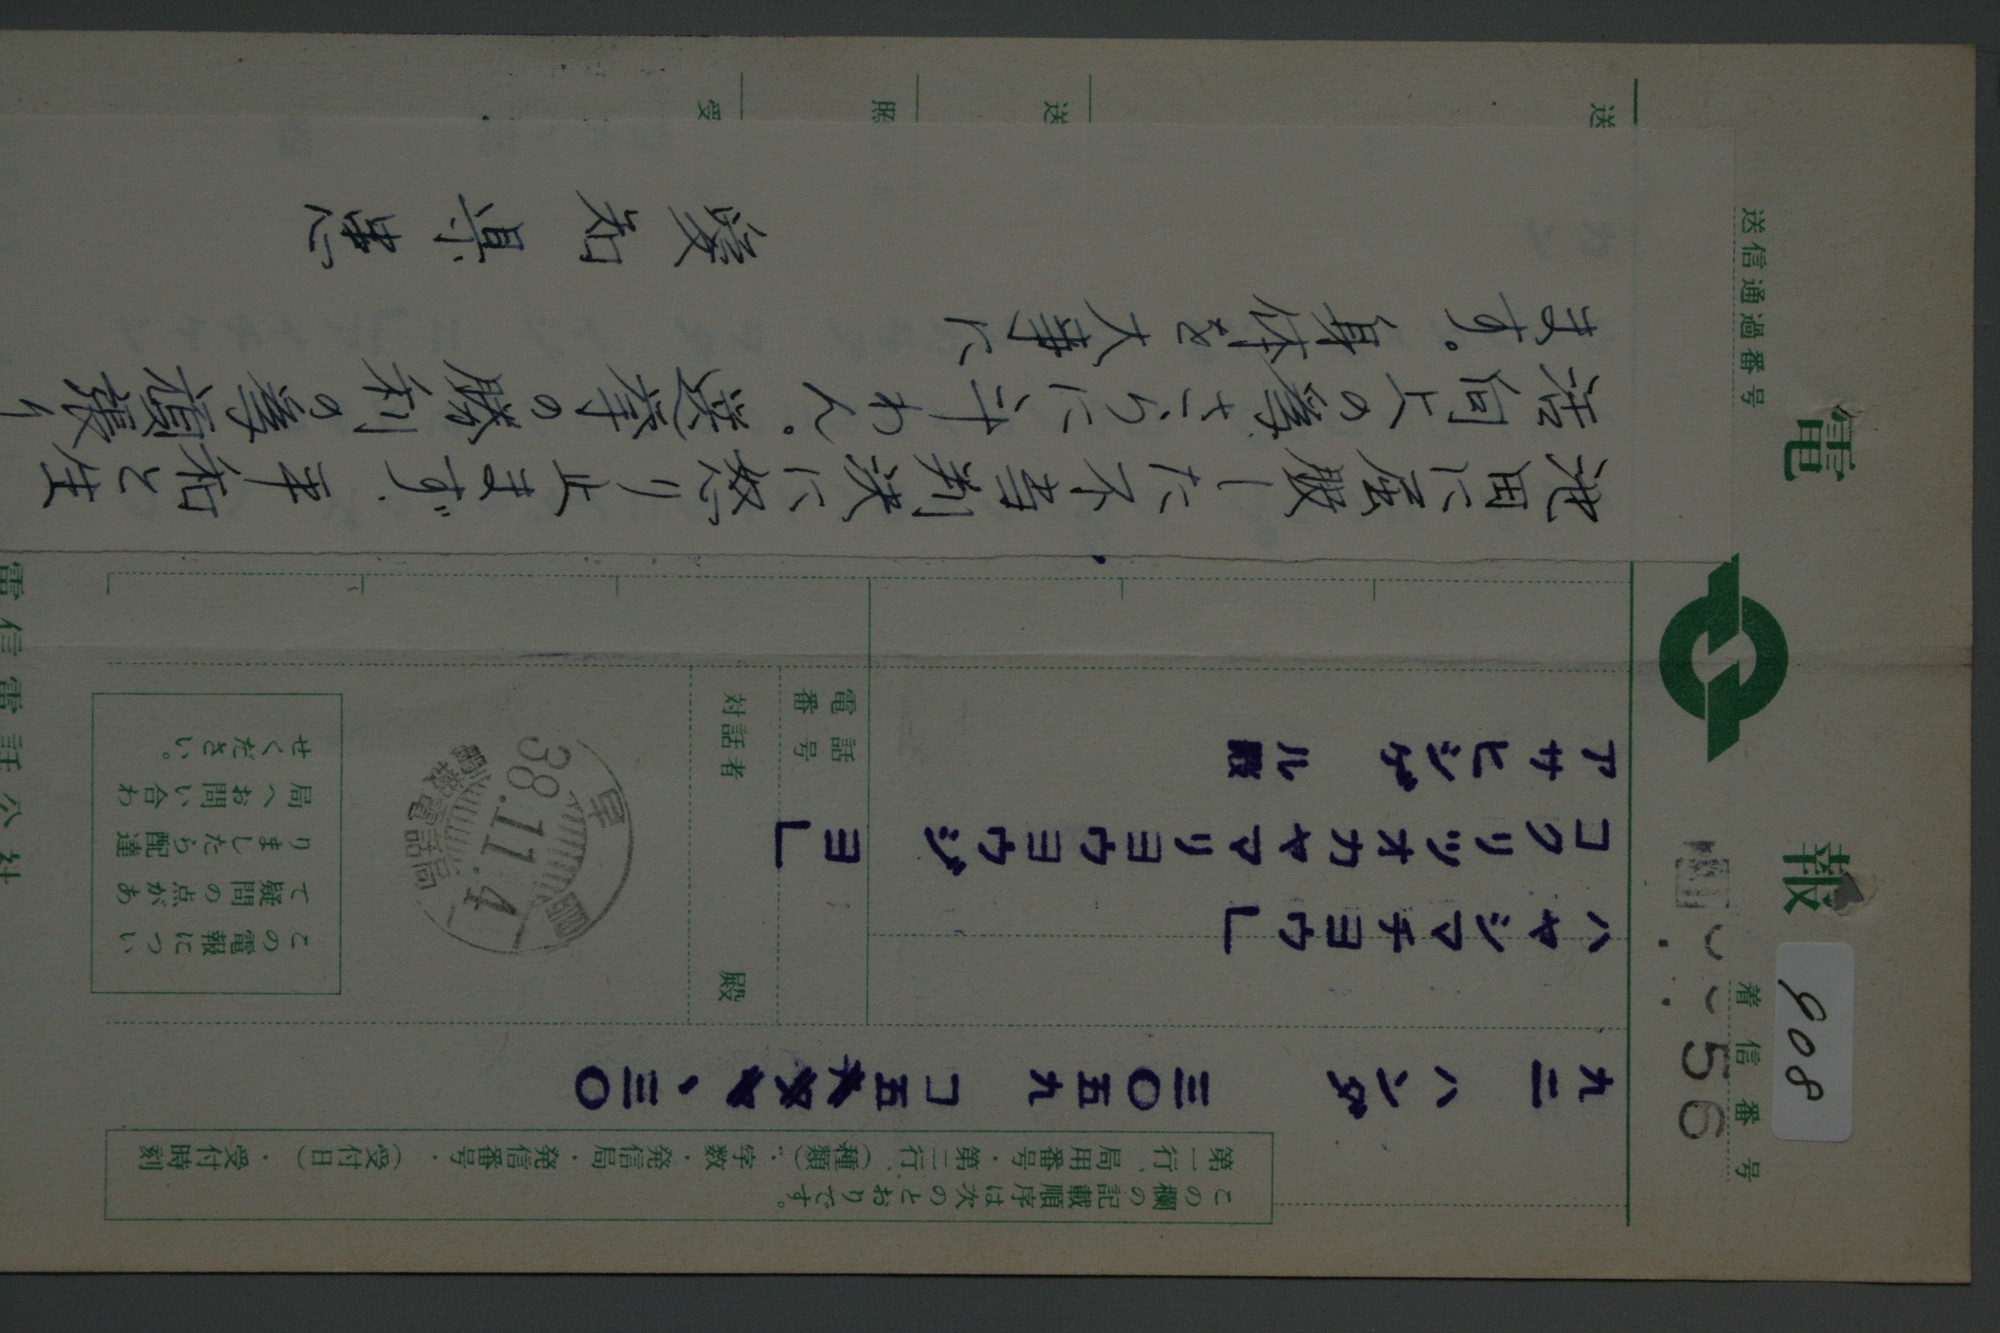 電報
908
着信番号
56
送信通過番号
この欄の記載順序は次のとおりです。
第一行、局用番号・第二行、(種類)・字数・発信局・発信番号・(受付日)・受付時刻
九二 ハンダ 三〇五九 コ五 、三〇
ハヤシマチヨウ」
コクリツオカヤマリヨウヨウジヨ」
アサヒシゲル殿
電話番号
対話者 殿
早島
38.11.4
電報電話局
この電報につい
て疑問の点があ
りましたら配達
局へお問い合わ
せください。
池田に屈服した不当判決に怒り止まず 平和と生
活向上の為さらに斗わん。選挙の勝利の為頑張り
ます。身体を大事に
愛知県患
送
送
照
受
電信電話公社